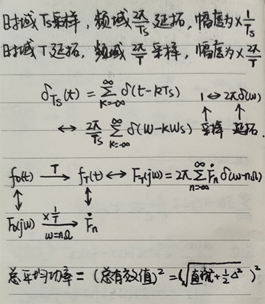 时域 Ts采样, 频域 2π/Ts 延拓, 幅度为×1/Ts
时域 T延拓, 频域 2π/T 采样, 幅度为×2π/T
δ_Ts(t) = Σ_{k=-∞}^{∞} δ(t-kTs) 1↔2πδ(ω)
↔ 2π/Ts Σ_{k=-∞}^{∞} δ(ω-kωs) 采样 延拓
f₀(t) —T→ f_T(t) ↔ F_T(jω) = 2π Σ_{n=-∞}^{∞} Ḟn δ(ω-nΩ)
F₀(jω) —×1/T, ω=nΩ→ Ḟn
总平均功率 = (总有效值)² = (√(直流²+½A²))²